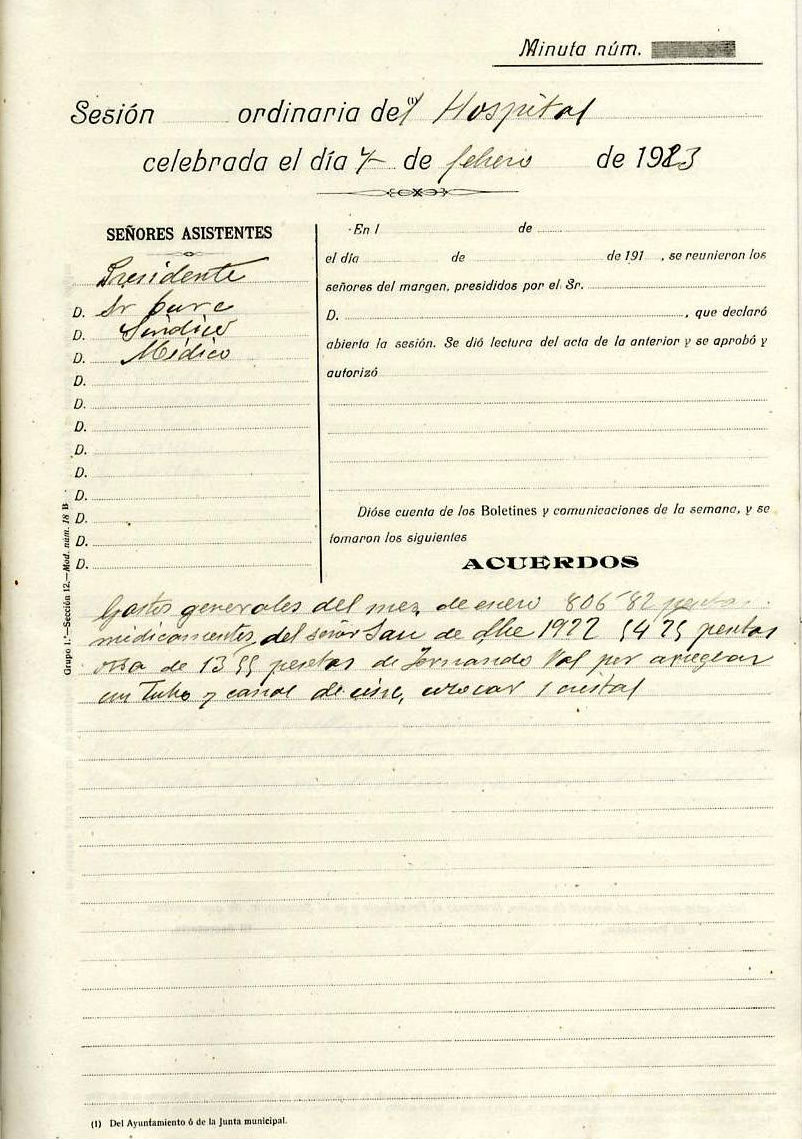 Minuta núm.
Sesión ordinaria del (1) Hospital
celebrada el día 7 de febrero de 1923
SEÑORES ASISTENTES
Presidente
D. Sr Cura
D. Síndico
D. Médico
D.
D.
D.
D.
D.
D.
D.
D.
D.
En l de
el día de de 191 , se reunieron los
señores del margen, presididos por el Sr.
D. , que declaró
abierta la sesión. Se dió lectura del acta de la anterior y se aprobó y
autorizó
Dióse cuenta de los Boletines y comunicaciones de la semana, y se
tomaron los siguientes
ACUERDOS
Gastos generales del mez de enero 806'82 pesetas
medicamentos del señor San de 1922 54 25 pesetas
otra de 13 55 pesetas de Fernando Val por arreglar
un tubo y canal de cinc, colocar 1 cristal
Grupo 1.º—Sección 12.—Mod. núm. 18 B
(1) Del Ayuntamiento ó de la Junta municipal.